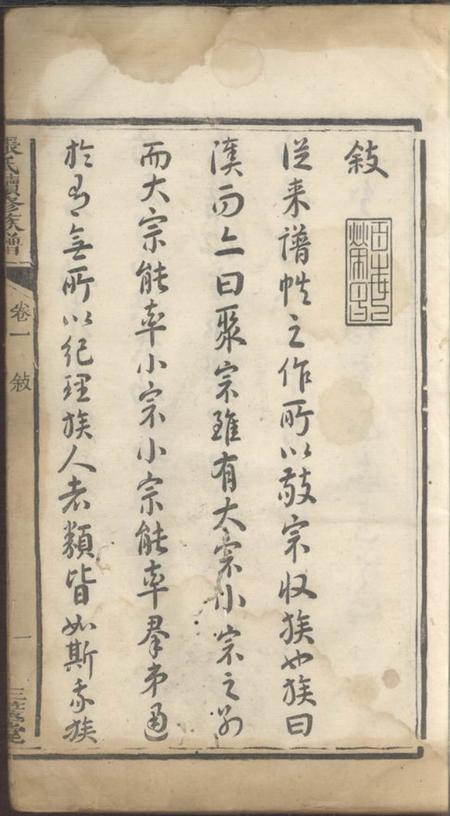 敍
從来譜帙之作所以敬宗收族也族曰
而上曰聚宗雖有大宗小宗之别
而大宗能率小宗小宗能率羣弟通
於有無所以紀理族人者類皆如斯我族
張氏續修族譜
卷一
敍
一